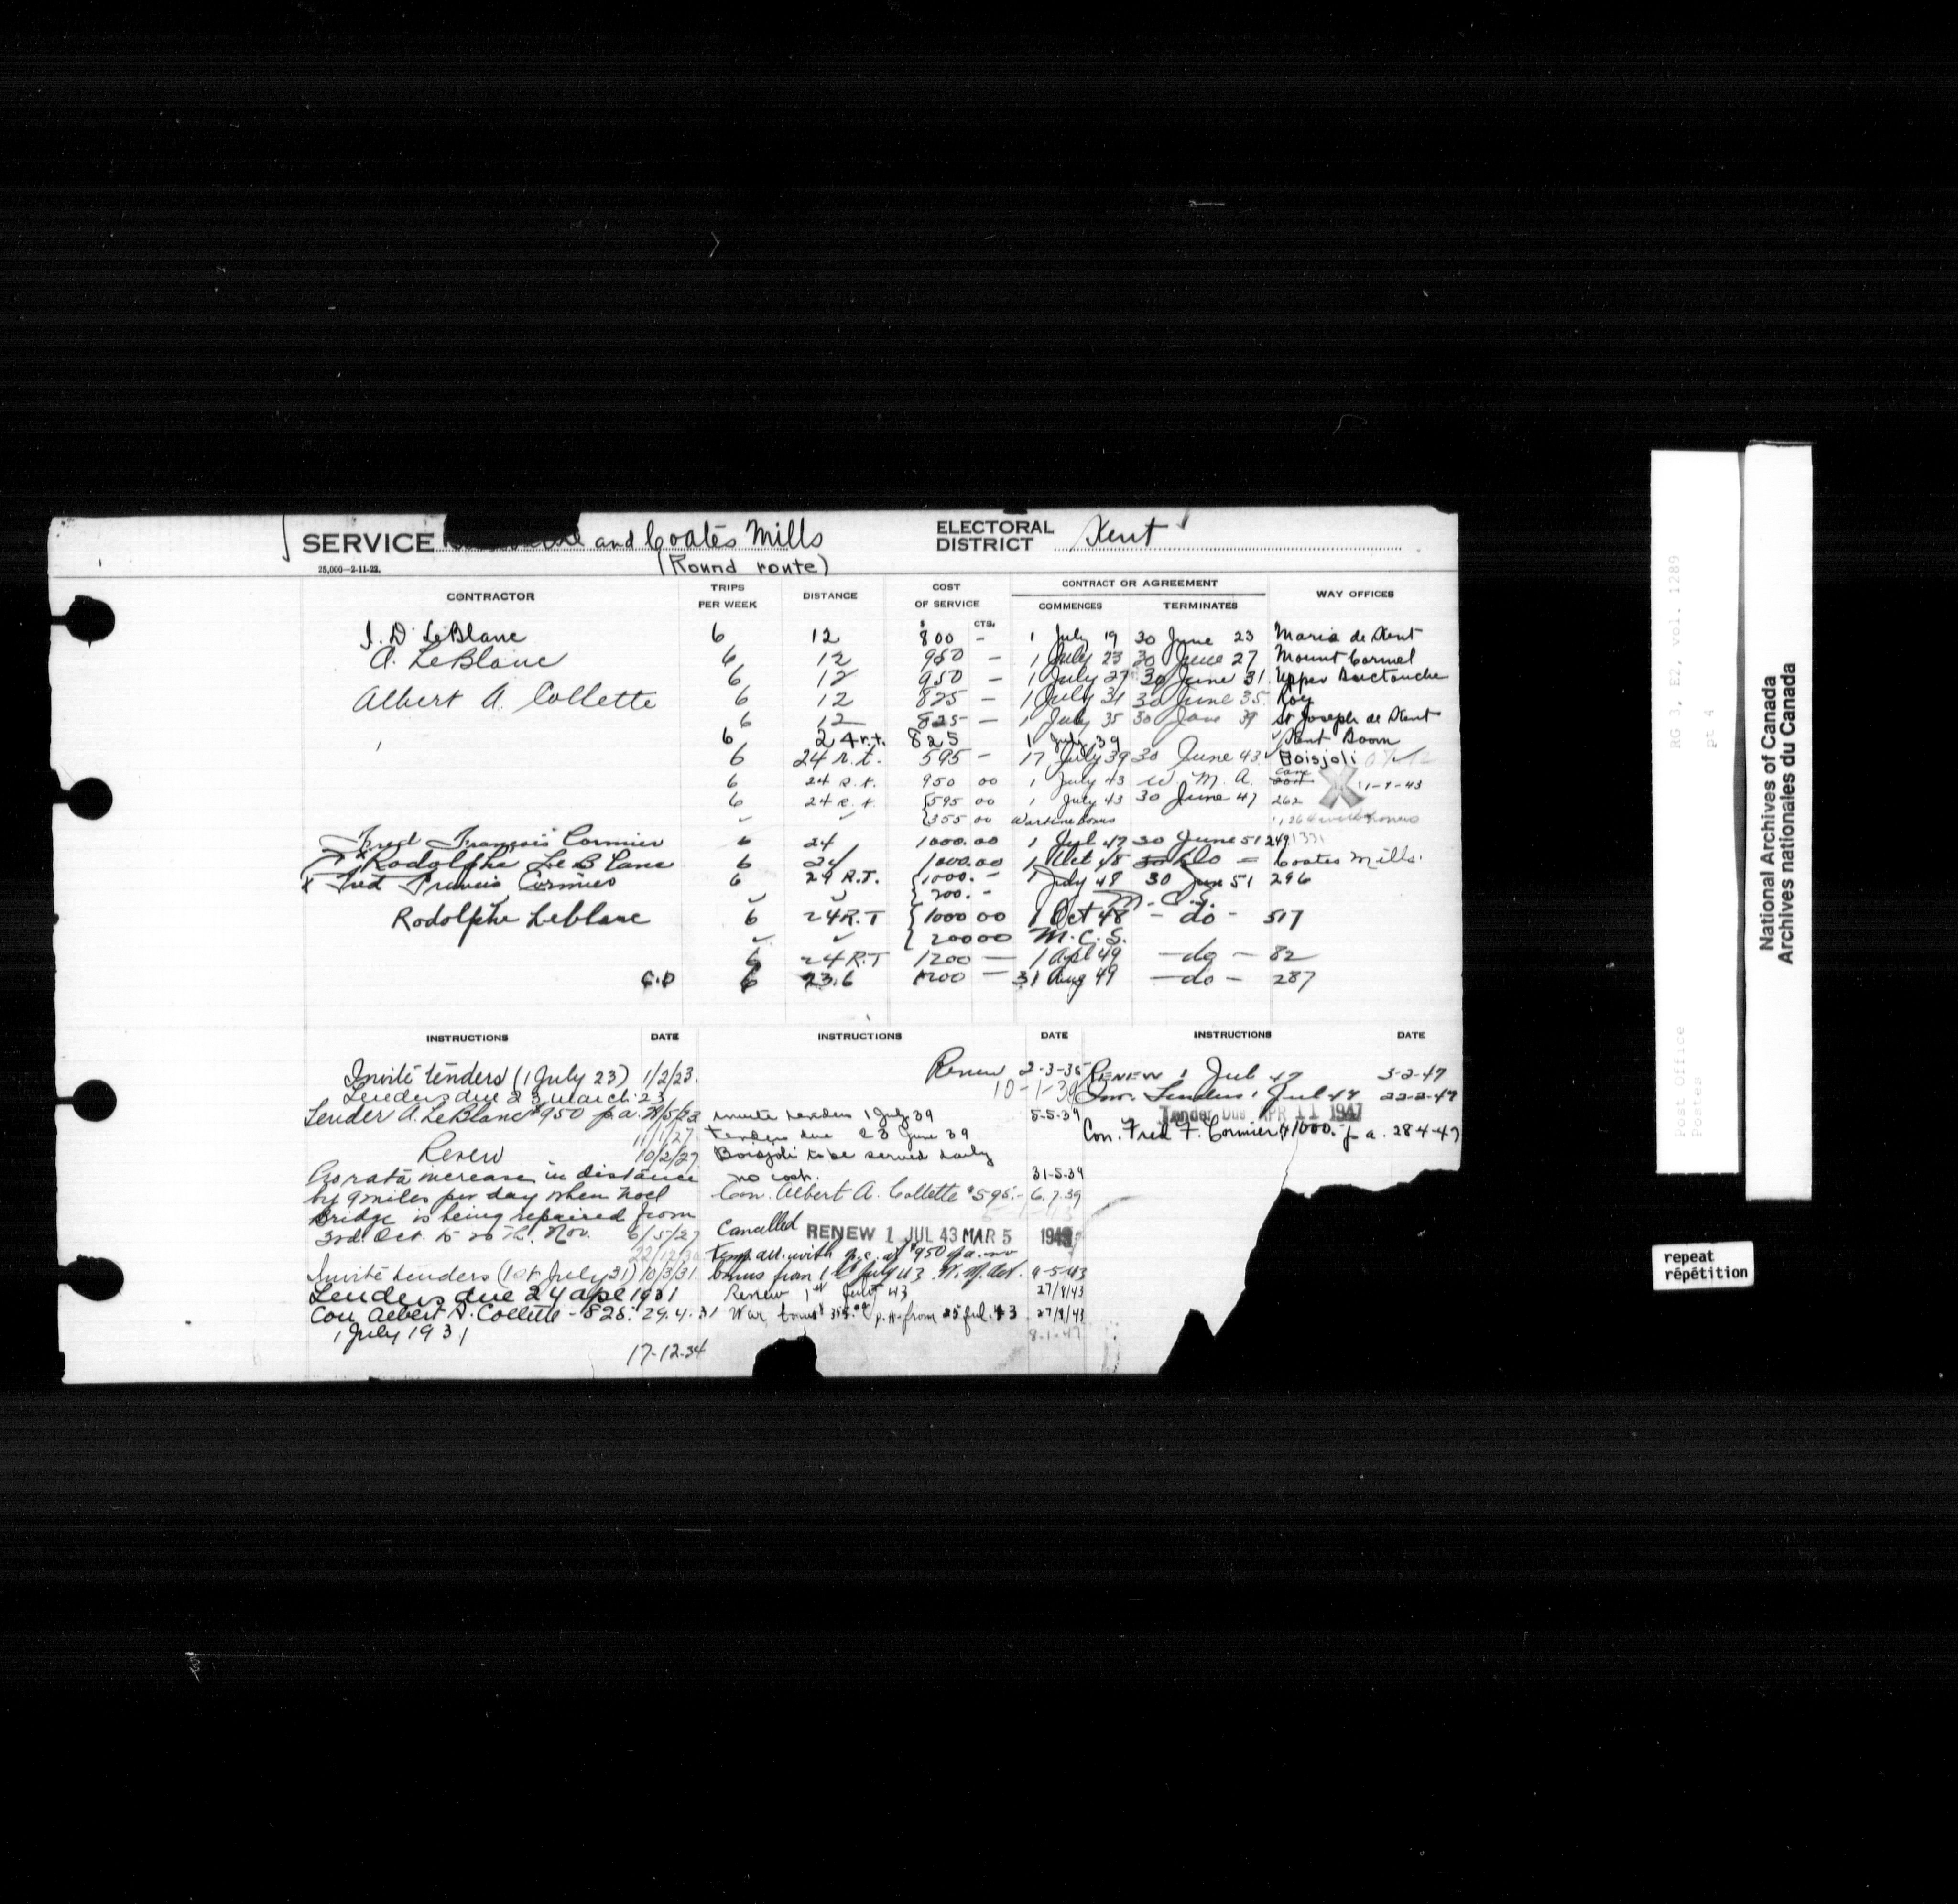 SERVICE and Coates Mills ELECTORAL DISTRICT Kent
(Round route)
25,000—2-11-22.
CONTRACTOR TRIPS PER WEEK DISTANCE COST OF SERVICE CONTRACT OR AGREEMENT COMMENCES TERMINATES WAY OFFICES
$ CTS.
J. D. LeBlanc 6 12 800 - 1 July 19 30 June 23 Maria de Kent
A. LeBlanc 6 12 950 - 1 July 23 30 June 27 Mount Carmel
6 12 950 - 1 July 27 30 June 31 Upper Buctouche
Albert A. Collette 6 12 825 - 1 July 31 30 June 35 Roy
6 12 825 - 1 July 35 30 June 39 St Joseph de Kent
6 24 r.t. 825 1 July 39 Kent Boom
6 24 r.t. 595 - 17 July 39 30 June 43 Boisjoli
6 24 R.t. 950 00 1 July 43 W. M. A. 11-7-43
6 24 R.t. {595 00 1 July 43 30 June 47 262
{355 00 Wartime bonus
Fred François Cormier 6 24 1000.00 1 Jul 47 30 June 51 249
Rodolphe LeBlanc 6 24 1000.00 1 Oct 48 do = Coates Mills.
x Fred Francis Cormier 6 24 R.T. {1000. - 1 July 48 30 June 51 296
{200. - M. C. S.
Rodolphe Leblanc 6 24 R.T {1000 00 1 Oct 48 - do - 517
{200 00 M. C. S.
6 24 R.T 1200 — 1 Apl 49 — do — 82
6 23.6 1200 — 31 Aug 49 — do — 287
INSTRUCTIONS DATE INSTRUCTIONS DATE INSTRUCTIONS DATE
Invite tenders (1 July 23) 1/2/23.
Tenders due 23 March 23
Tender A. LeBlanc $950 p.a. /5/23
11/1/27
Renew 10/2/27
Pro rata increase in distance
by 9 miles per day when Noel
Bridge is being repaired from
3rd Oct. to 20th Nov. 6/5/27
22/12/30
Invite tenders (1st July 31) 10/3/31.
Tenders due 24 apl 1931
Con Albert A. Collette - 825. 29.4.31
1 July 1931
17-12-34
Renew 2-3-35
10-1-39
Invite tenders 1 July 39 5-5-39
Tenders due 23 June 39
Boisjoli to be served daily
no cost. 31-5-39
Con. Albert A. Collette $595.- 6.7.39
Cancelled RENEW 1 JUL 43 MAR 5 1943
Temp. arr. with p.c. at $950 p.a. no
bonus from 1st July 43 W. M. Act. 4-5-43
Renew 1st July 43 27/8/43
War bonus p.a. from 25 Jul. 43 27/8/43
8-1-47
RENEW 1 Jul 47 3-2-47
Inv. Tenders 1 Jul 47 22-2-47
Tender Due APR 11 1947
Con. Fred F. Cormier $1000. p a. 28-4-47
RG 3, E2, vol. 1289
pt 4
Post Office
Postes
National Archives of Canada
Archives nationales du Canada
repeat
répétition